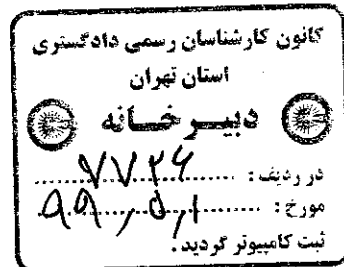 کانون کارشناسان رسمی دادگستری
استان تهران
دبیرخانه
در ردیف : ۷۷۲۶
مورخ : ۹۹/۵/۱
ثبت کامپیوتر گردید .